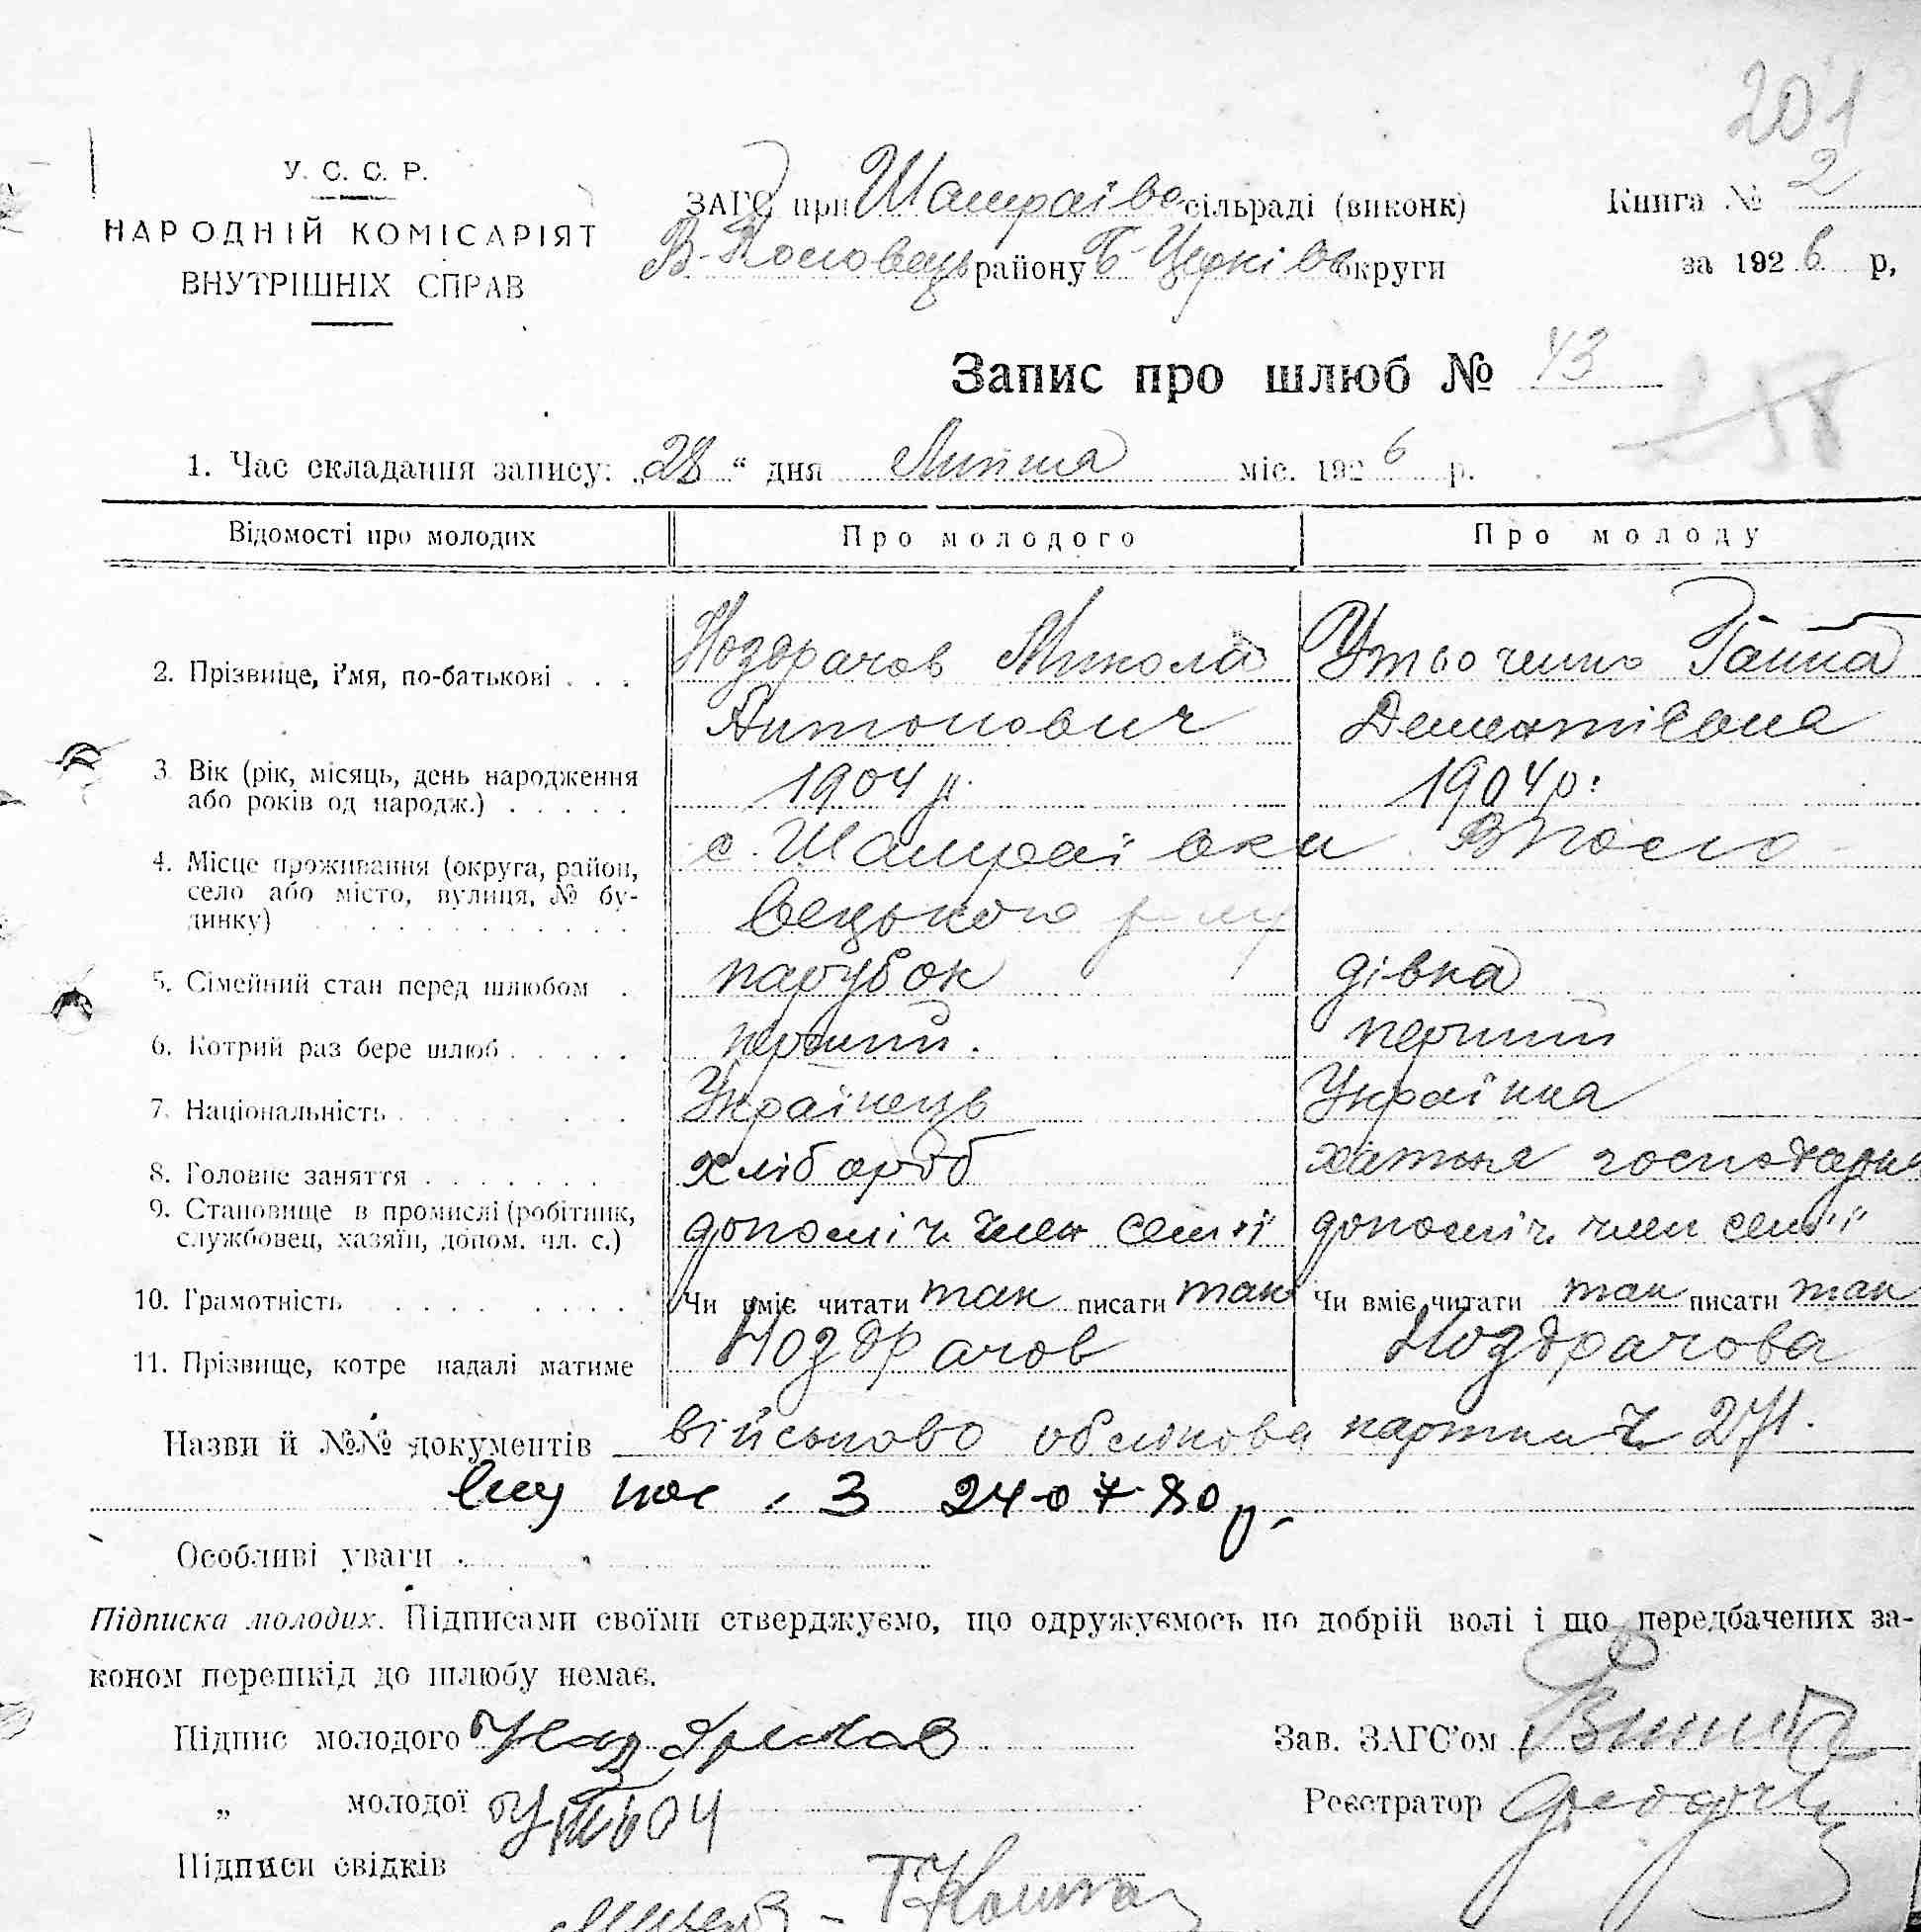 201
У. С. С. Р.
НАРОДНІЙ КОМІСАРІЯТ
ВНУТРІШНІХ СПРАВ
ЗАГС при Шамраївс сільраді (виконк)
В-Половець району Б-Церків округи
Книга № 2
за 1926 р.
Запис про шлюб № 43
1. Час складання запису: „28“ дня Липня міс. 1926 р.
Відомості про молодих Про молодого Про молоду
2. Прізвище, і'мя, по-батькові . . . Ноздрачов Микола Утвоченко Ганна
Антонович Дементівна
3. Вік (рік, місяць, день народження
або років од народж.) . . . . . 1904 р. 1904 р.
4. Місце проживання (округа, район,
село або місто, вулиця, № бу-
динку) . . . . . . . . . . . с. Шамраївки В Поло-
вецького р-ну
5. Сімейний стан перед шлюбом . парубок дівка
6. Котрий раз бере шлюб . . . . . перший. перший
7. Національність . . . . . . Українець Українка
8. Головне заняття . . . . . . . хлібороб хатня господарка
9. Становище в промислі (робітник,
службовец, хазяїн, допом. чл. с.) допоміч. член сем'ї допоміч. член сем'ї
10. Грамотність . . . . . . . . Чи вміє читати так писати так Чи вміє читати так писати так
11. Прізвище, котре надалі матиме Ноздрачов Ноздрачова
Назви й №№ документів військово облікова картка ч. 271.
3 24-07-80 р.
Особливі уваги
Підписка молодих. Підписами своїми стверджуємо, що одружуємось по добрій волі і що передбачених за-
коном перешкід до шлюбу немає.
Підпис молодого Зав. ЗАГС'ом
„ молодої Утвоч Реєстратор
Підписи свідків